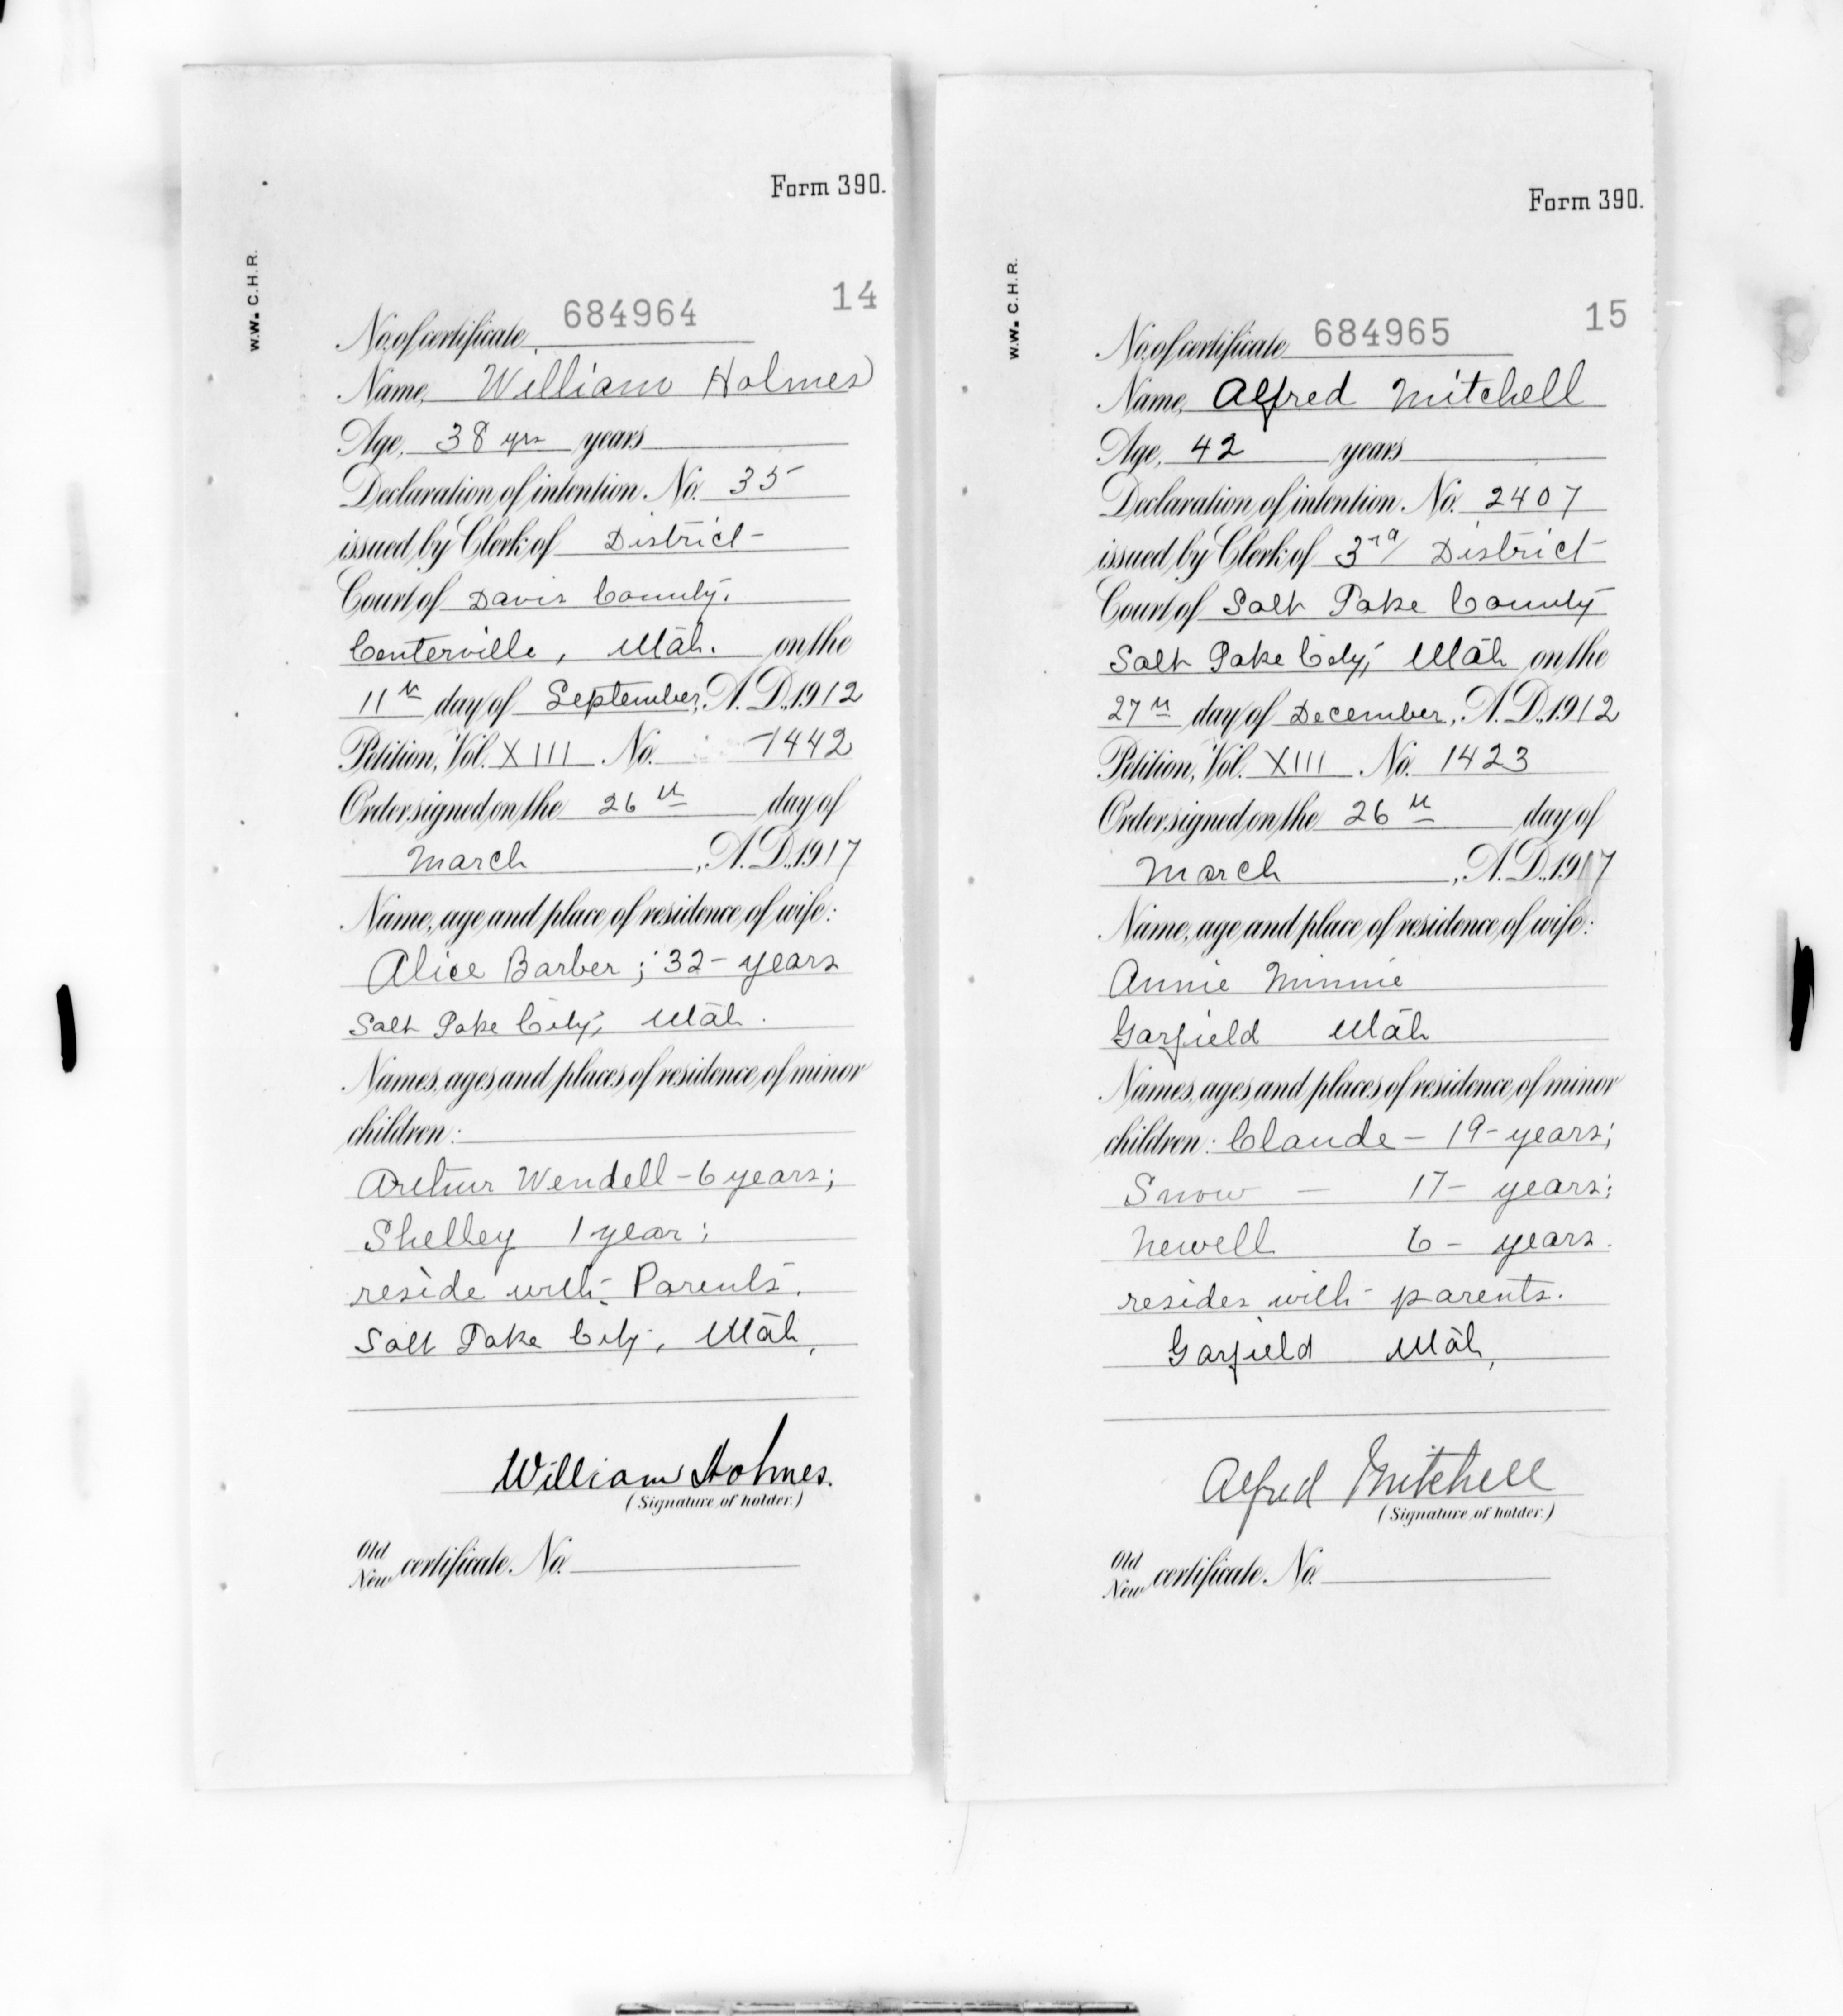 Form 390.
W.W. C.H.R.
14
No. of certificate, 684964
Name, William Holmes
Age, 38 yrs years
Declaration of intention No. 35
issued by Clerk of District
Court of Davis County.
Centerville, Utah. on the
11th day of September, A.D., 1912
Petition, Vol. XIII No. 1442
Order signed on the 26th day of
March, A.D., 1917
Name, age and place of residence of wife:
Alice Barber; 32- years
Salt Lake City, Utah.
Names, ages and places of residence of minor
children:
Arthur Wendell - 6 years;
Shelley 1 year;
reside with Parents.
Salt Lake City, Utah,
William Holmes.
(Signature of holder.)
Old
New certificate No.
Form 390.
W.W. C.H.R.
15
No. of certificate 684965
Name, Alfred Mitchell
Age, 42 years
Declaration of intention No. 2407
issued by Clerk of 3rd District
Court of Salt Lake County
Salt Lake City, Utah on the
27th day of December, A.D., 1912
Petition, Vol. XIII No. 1423
Order signed on the 26th day of
March, A.D., 1917
Name, age and place of residence of wife:
Annie Minnie
Garfield Utah
Names, ages and places of residence of minor
children: Claude - 19- years;
Snow - 17- years;
Newell 6- years.
resides with parents.
Garfield Utah,
Alfred Mitchell
(Signature of holder.)
Old
New certificate No.